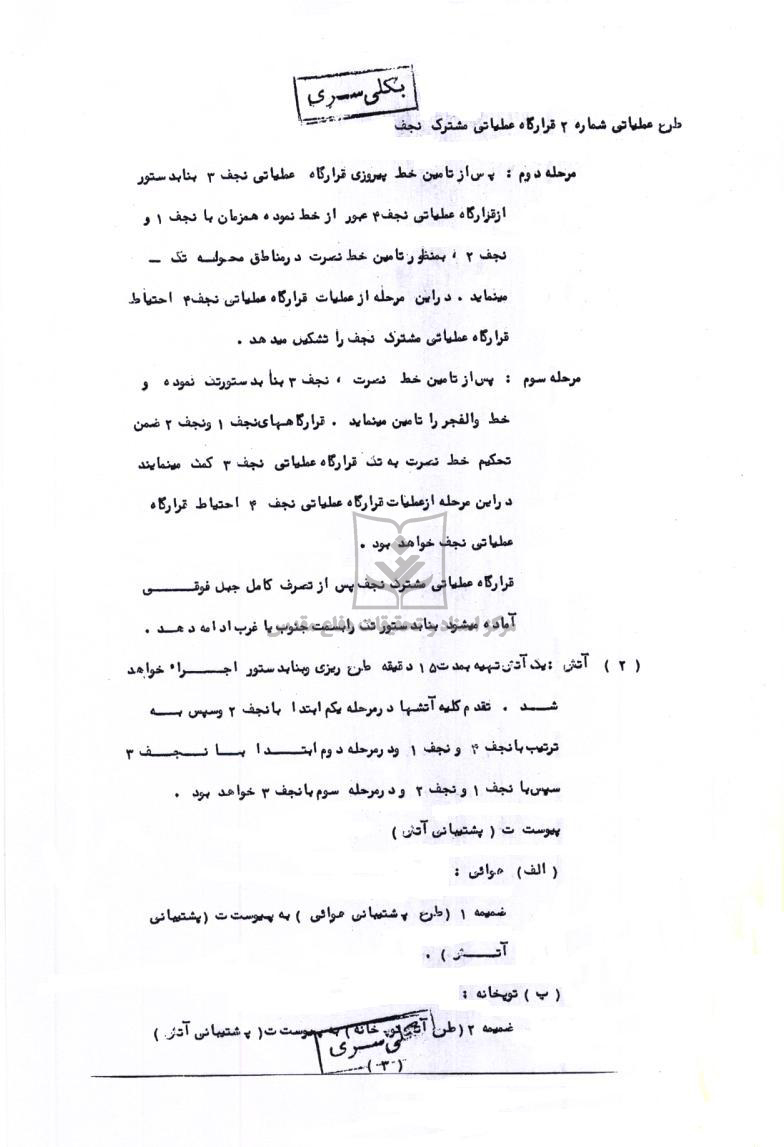 بکلی سری
طرح عملیاتی شماره ۲ قرارگاه عملیاتی مشترک نجف
مرحله دوم : پس از تامین خط پیروزی قرارگاه عملیاتی نجف ۳ بنابدستور
ازقرارگاه عملیاتی نجف۴ عبور از خط نموده همزمان با نجف ۱ و
نجف ۲ ، بمنظور تامین خط نصرت درمناطق محوله تک ــ
مینماید . دراین مرحله از عملیات قرارگاه عملیاتی نجف۴ احتیاط
قرارگاه عملیاتی مشترک نجف را تشکیل میدهد .
مرحله سوم : پس از تامین خط نصرت ، نجف ۳ بنا بدستورتک نموده و
خط والفجر را تامین مینماید . قرارگاههای‌نجف ۱ ونجف ۲ ضمن
تحکیم خط نصرت به تک قرارگاه عملیاتی نجف ۳ کمک مینمایند
دراین مرحله ازعملیات قرارگاه عملیاتی نجف ۴ احتیاط قرارگاه
عملیاتی نجف خواهد بود .
قرارگاه عملیاتی مشترک نجف پس از تصرف کامل جبل فوقــــی
آماده میشود بنابدستور تک رابسمت جنوب یا غرب ادامه دهــد .
مرکز اسناد و تحقیقات دفاع مقدس
( ۲ ) آتش : یک آتش تهیه بمدت۱۵ دقیقه طرح ریزی وبنابدستور اجــــراء خواهد
شـــد . تقدم کلیه آتشها درمرحله یکم ابتدا بانجف ۲ وسپس بـــه
ترتیب بانجف ۴ و نجف ۱ ودرمرحله دوم ابتـــدا بــا نـــجــف ۳
سپس با نجف ۱ و نجف ۲ ودرمرحله سوم بانجف ۳ خواهد بود .
پیوست ت ( پشتیبانی آتش )
( الف) هوائی :
ضمیمه ۱ (طرح پشتیبانی هوائی ) به پیوست ت (پشتیبانی
آتـــش ) .
( ب ) توپخانه :
ضمیمه ۲ (طرح آتش توپخانه) به پیوست ت( پشتیبانی آتش )
بکلی سری
(-۳-)